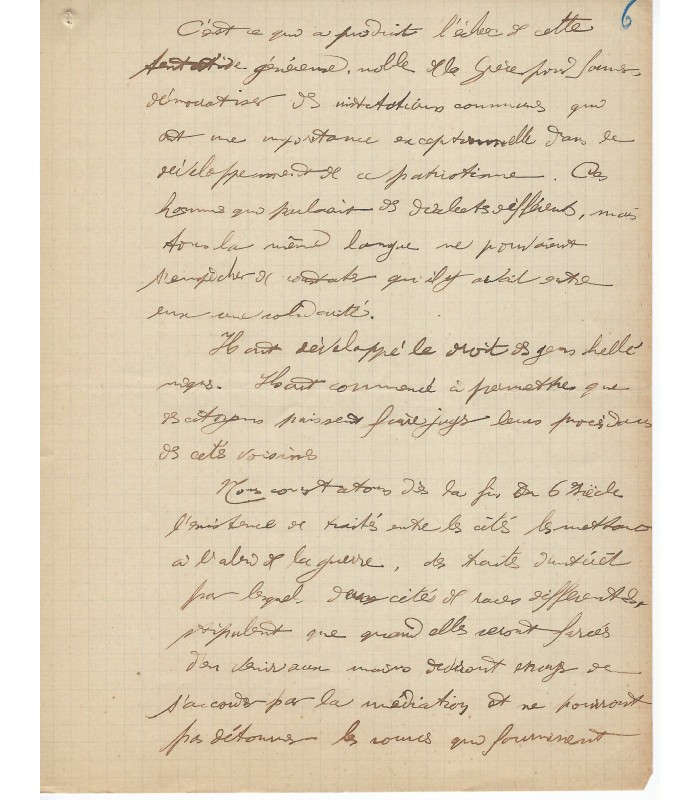 6
C'est ce qui a produit l'échec de cette
tentative généreuse, noble de la Grèce pour
démocratiser des institutions communes qui
ont une importance exceptionnelle dans le
développement de ce patriotisme. Ces
hommes qui parlaient des dialectes différents, mais
tous la même langue ne pouvaient
s'empêcher de constater qu'il y avait entre
eux une solidarité.
Ils ont développé le droit des gens hellé
niques. Ils ont commencé à permettre que
des citoyens puissent faire juger leurs procès dans
des cités voisines
Nous constatons dès la fin du 6 siècle
l'existence de traités entre les cités les mettant
à l'abri de la guerre, des traités
par lequel deux cité de races différentes
stipulent que quand elles seront forcés
d'en venir aux mains de
s'accorder par la médiation et ne pourront
pas détourner les sources qui fournissent